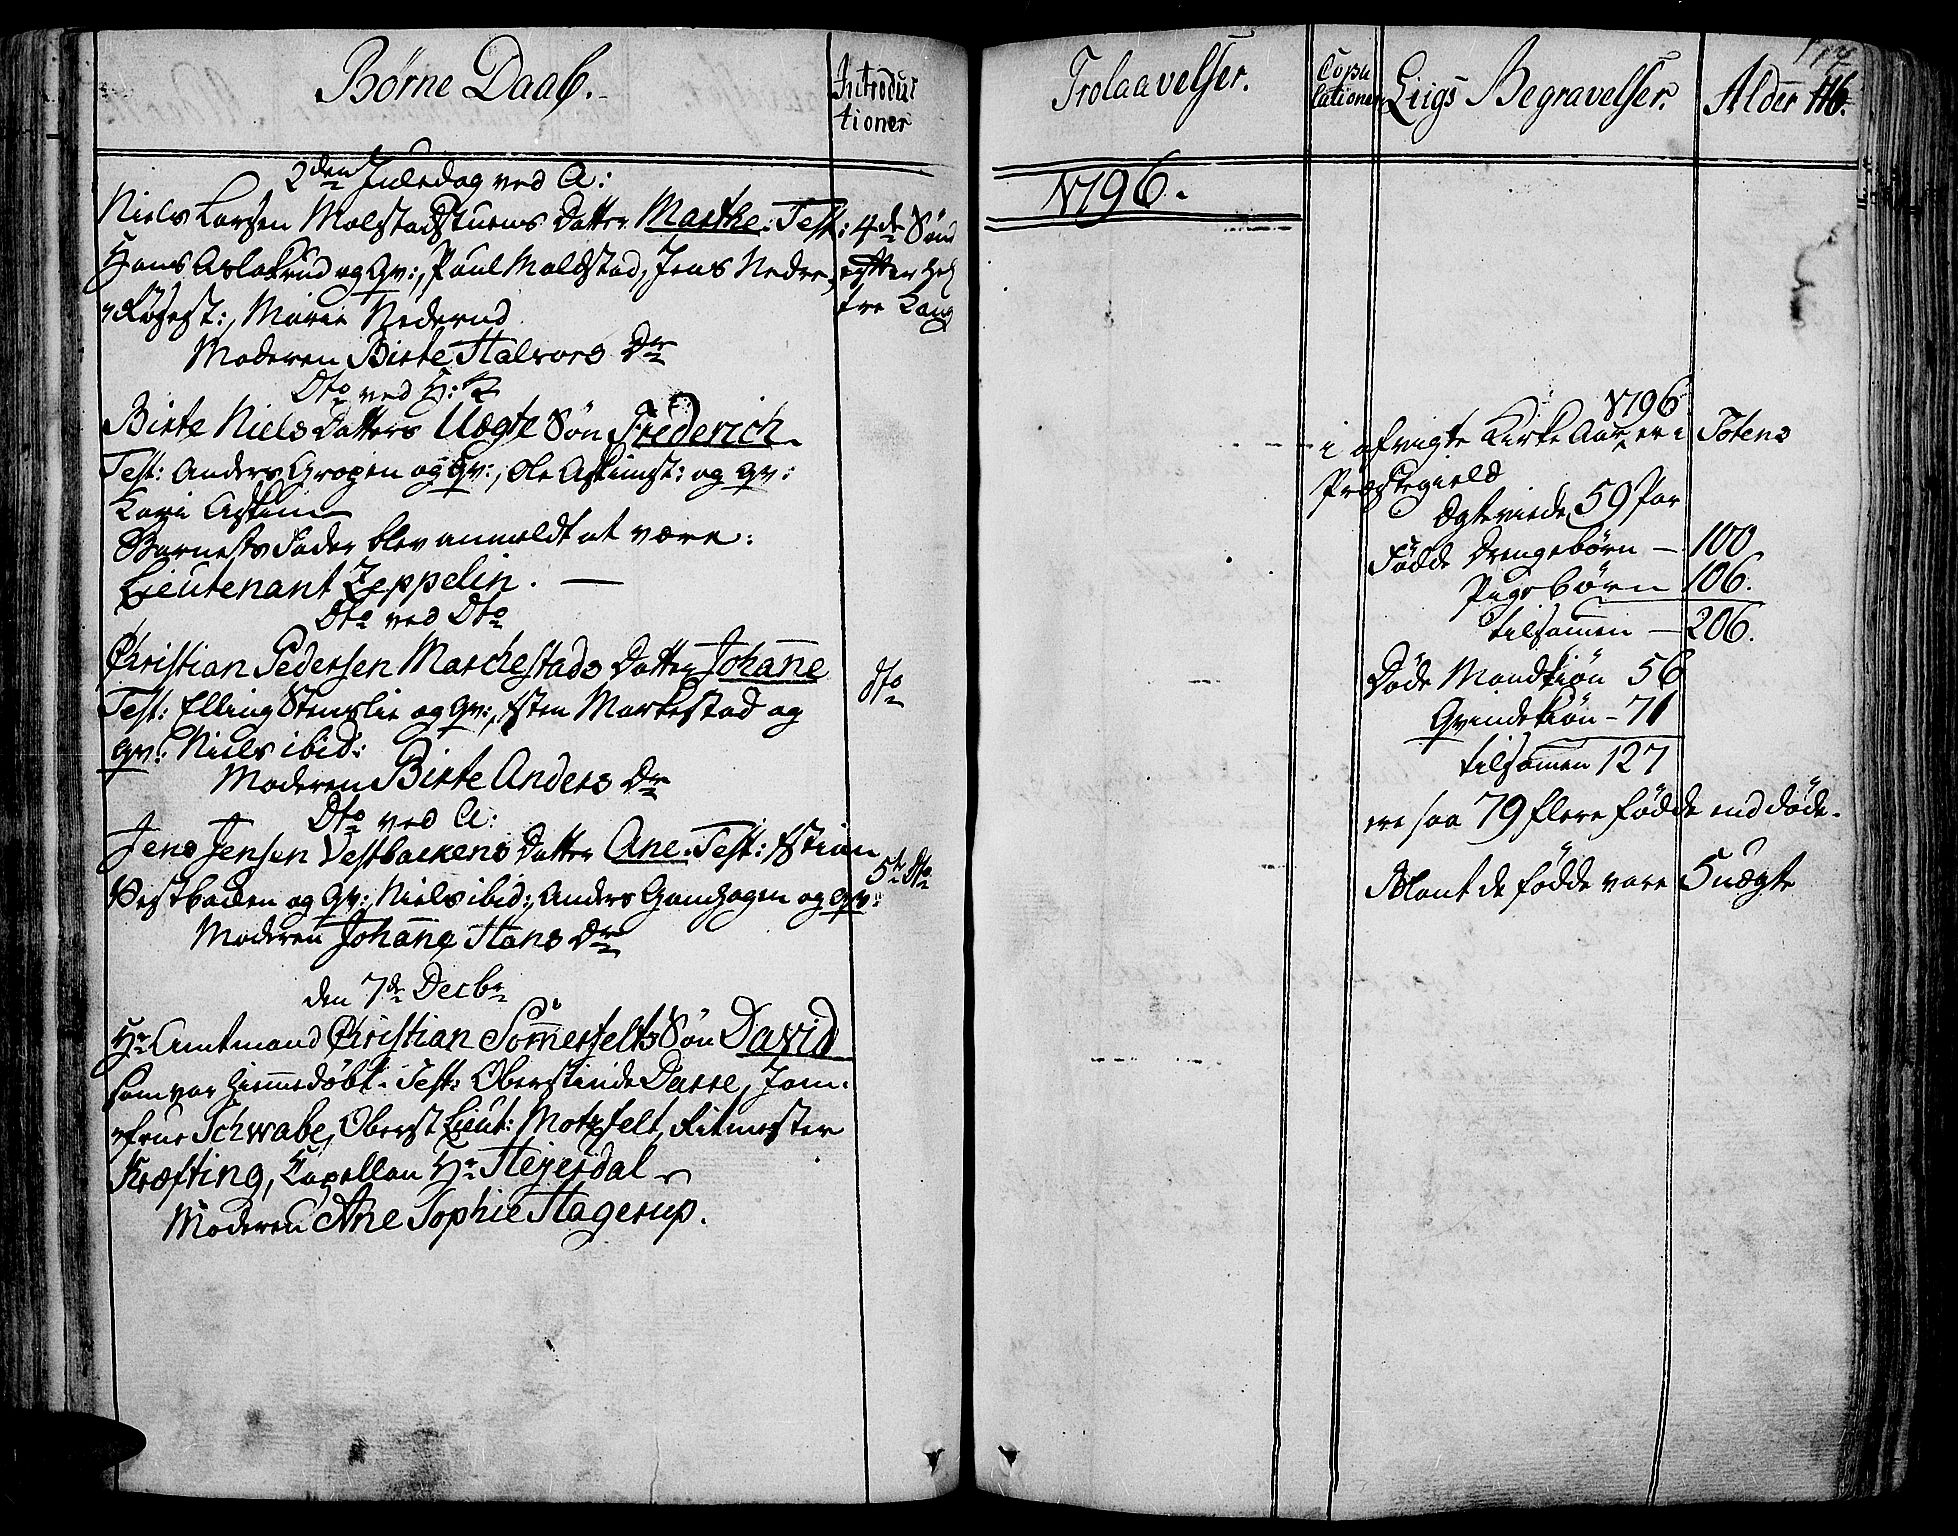 Børne Daab.
Introduc
tioner
2den Juledag ved A:
Niels Larsen Molstadstuens Datter Marthe. Test:
4de Sønd
Hans Aslakrud og Qv:, Paul Molstad, Jens Nedre
efter Hel
Røhest:, Marie Nederud
tre Kong
Moderen Birte Halvors Dr
Dto ved H: K
Birte Niels Datters Uægte Søn Friderich.
Test: Anders Gropen og Qv:, Ole Askimst: og Qv:
Kari Askim
Barnets Fader blev anmeldt at være:
Lieutenant Zeppelin. —
Dto ved Dto
Christian Pedersen Marchestads Datter Johañe
dto
Test: Elling Stenslie og Qv:, Østen Markestad og
Qv: Niels ibid:
Moderen Birte Anders Dr
Dto ved A:
Jens Jensen Vestbackens Datter Ane. Test: Kstian
5te dto
Vestbacken og Qv:, Niels ibid:, Anders og Qv:
Moderen Johañe Hans Dr
den 7de Decbr
Hr Amtmand Christian Som̃erfelts Søn David
som var hiem̃edøbt. Test: Oberstinde Darre, Jom-
frue Schwabe, Oberst Lieut: Motzfelt, Ritmester
Kræfting, Capellan Hr Heyerdal
Moderen Ane Sophie Hagerup.
Trolaavelser.
Copu
lationer
Liigs Begravelser.
Alder
117
116.
1796.
1796
i afvigte Kirke Aar er i Totens
Præstegield
Ægteviede 59 Par
Fødde Drengebørn — 100
Pigebørn 106.
tilsam̃en — 206.
Døde Mandkiøn 56
Qvindekiøn - 71
tilsam̃en 127
ere saa 79 flere fødde end døde.
Blant de fødde vare 5 uægte